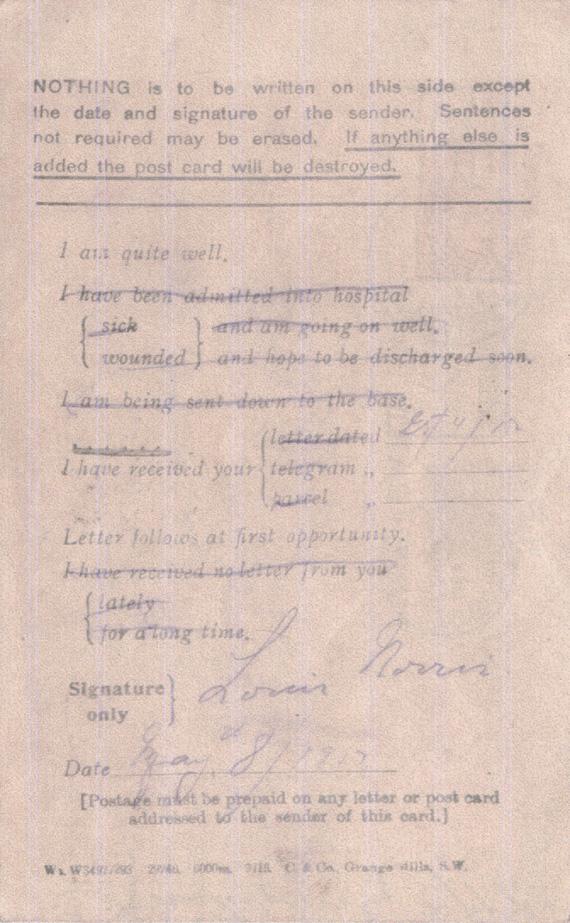 NOTHING is to be written on this side except
the date and signature of the sender. Sentences
not required may be erased. If anything else is
added the post card will be destroyed.
I am quite well.
I have been admitted into hospital
{ sick } and am going on well.
{ wounded } and hope to be discharged soon.
I am being sent down to the base.
letter dated
I have received your { telegram ,,
parcel ,,
Letter follows at first opportunity.
I have received no letter from you
{ lately
for a long time.
Signature
only } Louis Norris
Date May 8/1917
[Postage must be prepaid on any letter or post card
addressed to the sender of this card.]
6000m. 9/16. C. & Co., Grange Mills, S.W.